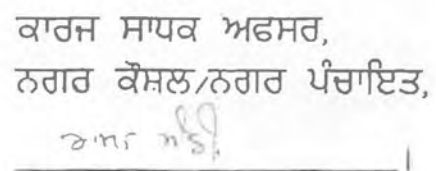 ਕਾਰਜ ਸਾਧਕ ਅਫਸਰ,
ਨਗਰ ਕੌਸ਼ਲ/ਨਗਰ ਪੰਚਾਇਤ,
।